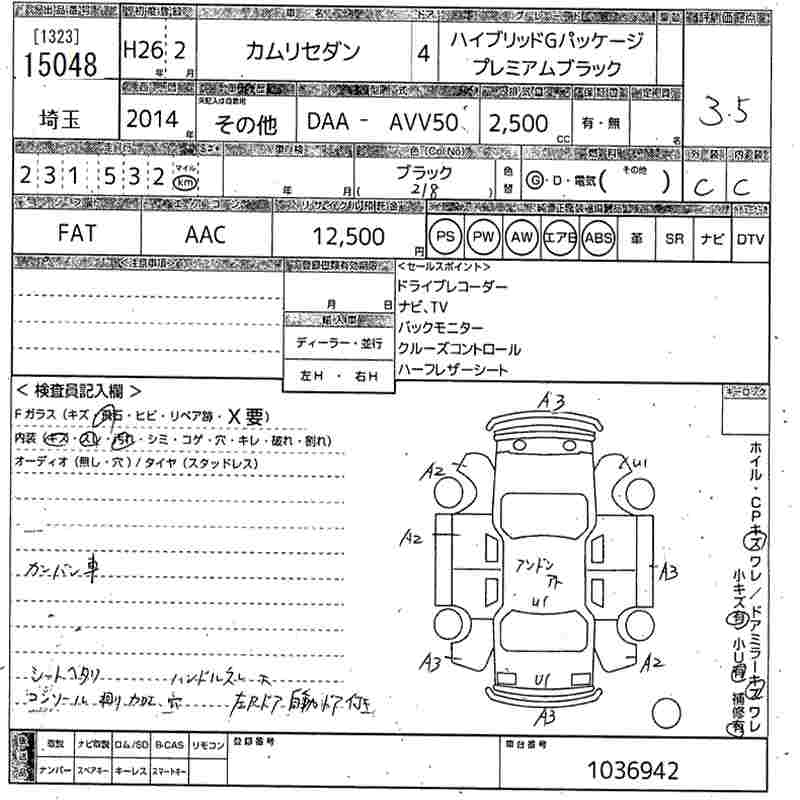 [1323]
15048
埼玉
H26 2
年 月
カムリセダン
4
ハイブリッドGパッケージ
プレミアムブラック
3.5
2014 年
その他
DAA - AVV50
2,500 cc
有・無
名
2 3 1 5 3 2 マイル km
年 月
ブラック
( 218 )
色替
G・D・電気( その他 )
C C
FAT
AAC
12,500 円
PS PW AW エアB ABS 革 SR ナビ DTV
<注意事項>
登録書類有効期限
月 日
輸入車
ディーラー・並行
左H ・ 右H
<セールスポイント>
ドライブレコーダー
ナビ、TV
バックモニター
クルーズコントロール
ハーフレザーシート
キーロック
< 検査員記入欄 >
Fガラス (キズ・飛石・ヒビ・リペア跡・X要)
内装 (キズ・スレ・汚れ・シミ・コゲ・穴・キレ・破れ・割れ)
オーディオ (無し・穴) / タイヤ (スタッドレス)
カンバン車
シートヘタリ ハンドルスレ
コンソール 加工 穴 左Rドア自動ドア付き
A3
A2 U1
A2
A3
アンドン
アト
U1
A3 A2
U1
A3
ホイル・CPキズワレ/ドアミラーキズワレ
小キズ有 小U有 補修有
後送品
取説 ナビ取説 ロム/SD B-CAS リモコン
ナンバー スペアキー キーレス スマートキー
登録番号
車台番号
1036942